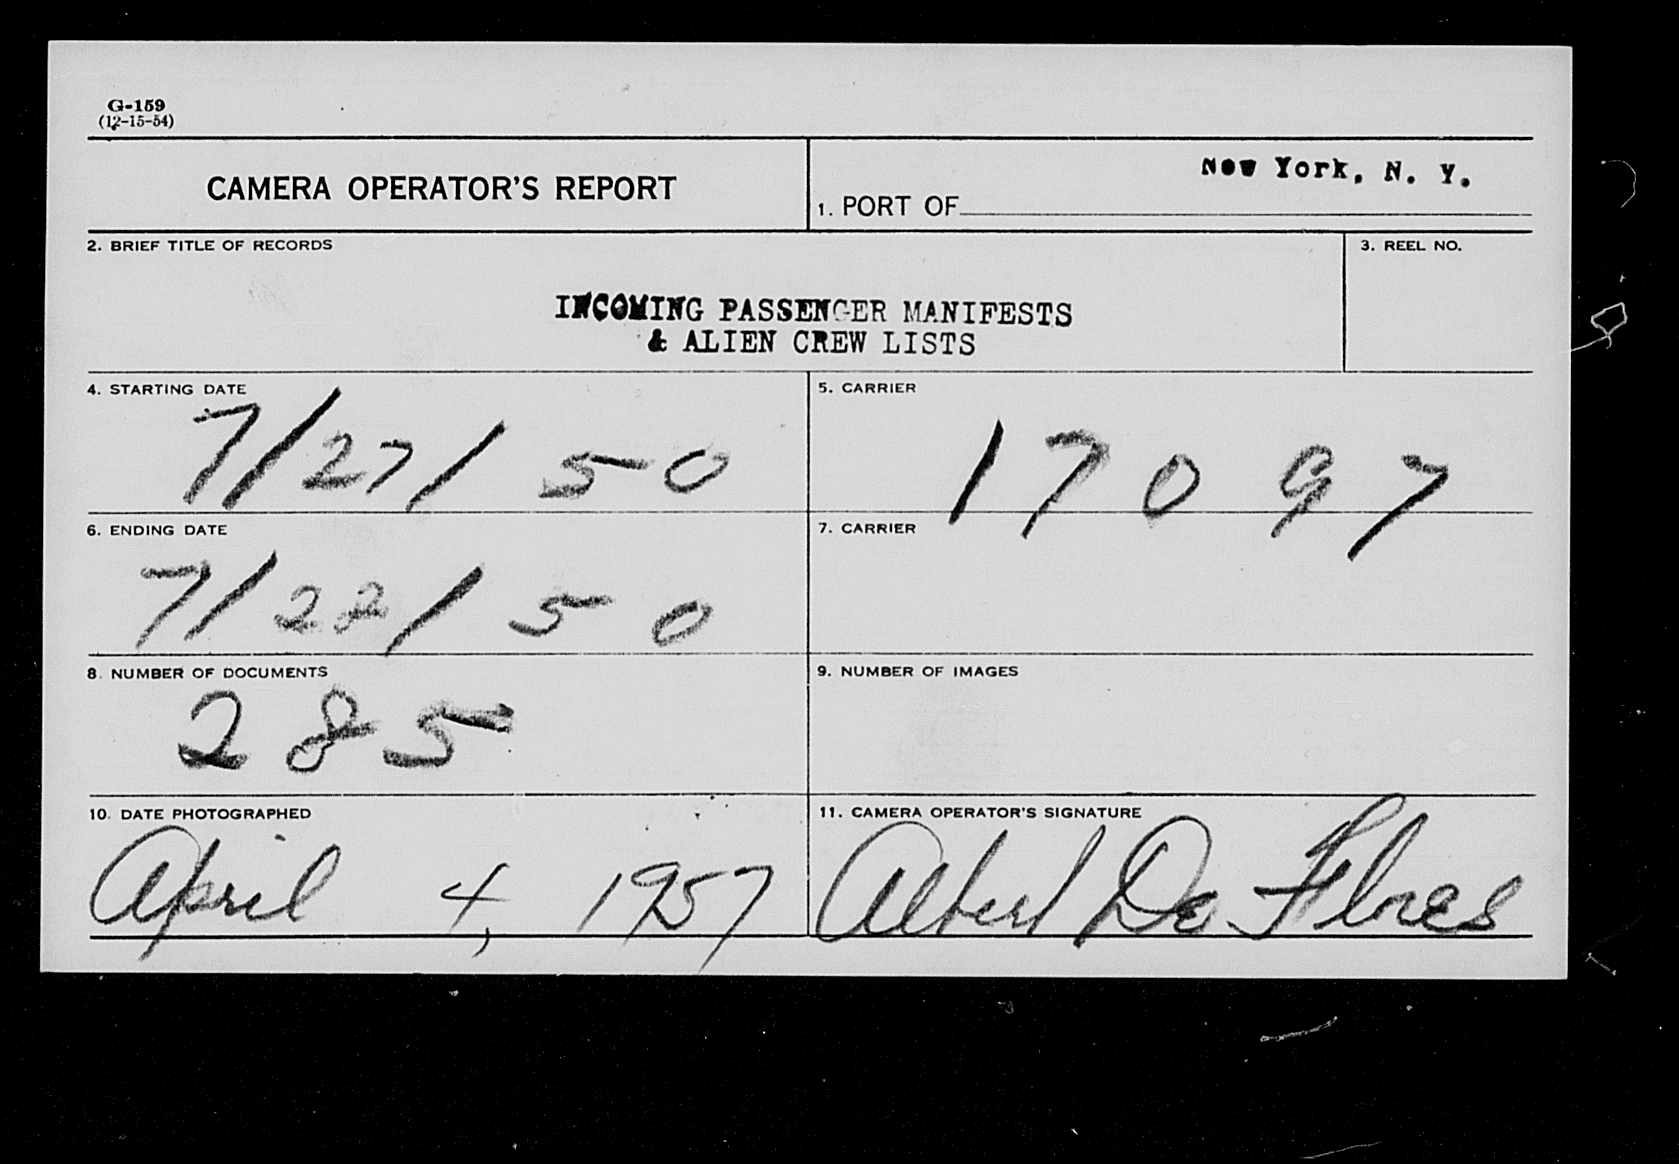 G-159
(12-15-54)
CAMERA OPERATOR'S REPORT
1. PORT OF New York, N. Y.
2. BRIEF TITLE OF RECORDS
3. REEL NO.
INCOMING PASSENGER MANIFESTS
& ALIEN CREW LISTS
4. STARTING DATE
7/27/50
5. CARRIER
17097
6. ENDING DATE
7/27/50
7. CARRIER
8. NUMBER OF DOCUMENTS
285
9. NUMBER OF IMAGES
10. DATE PHOTOGRAPHED
April 4, 1957
11. CAMERA OPERATOR'S SIGNATURE
Albert De Flores